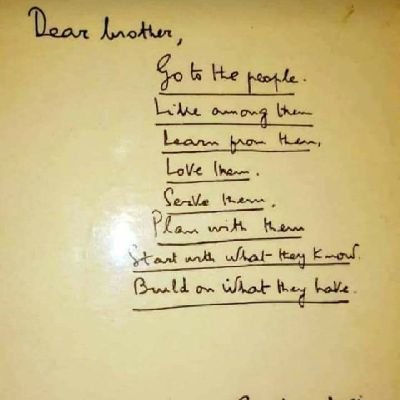 Dear brother,
Go to the people.
Live among them
Learn from them,
Love them.
Serve them,
Plan with them
Start with what they know.
Build on what they have.